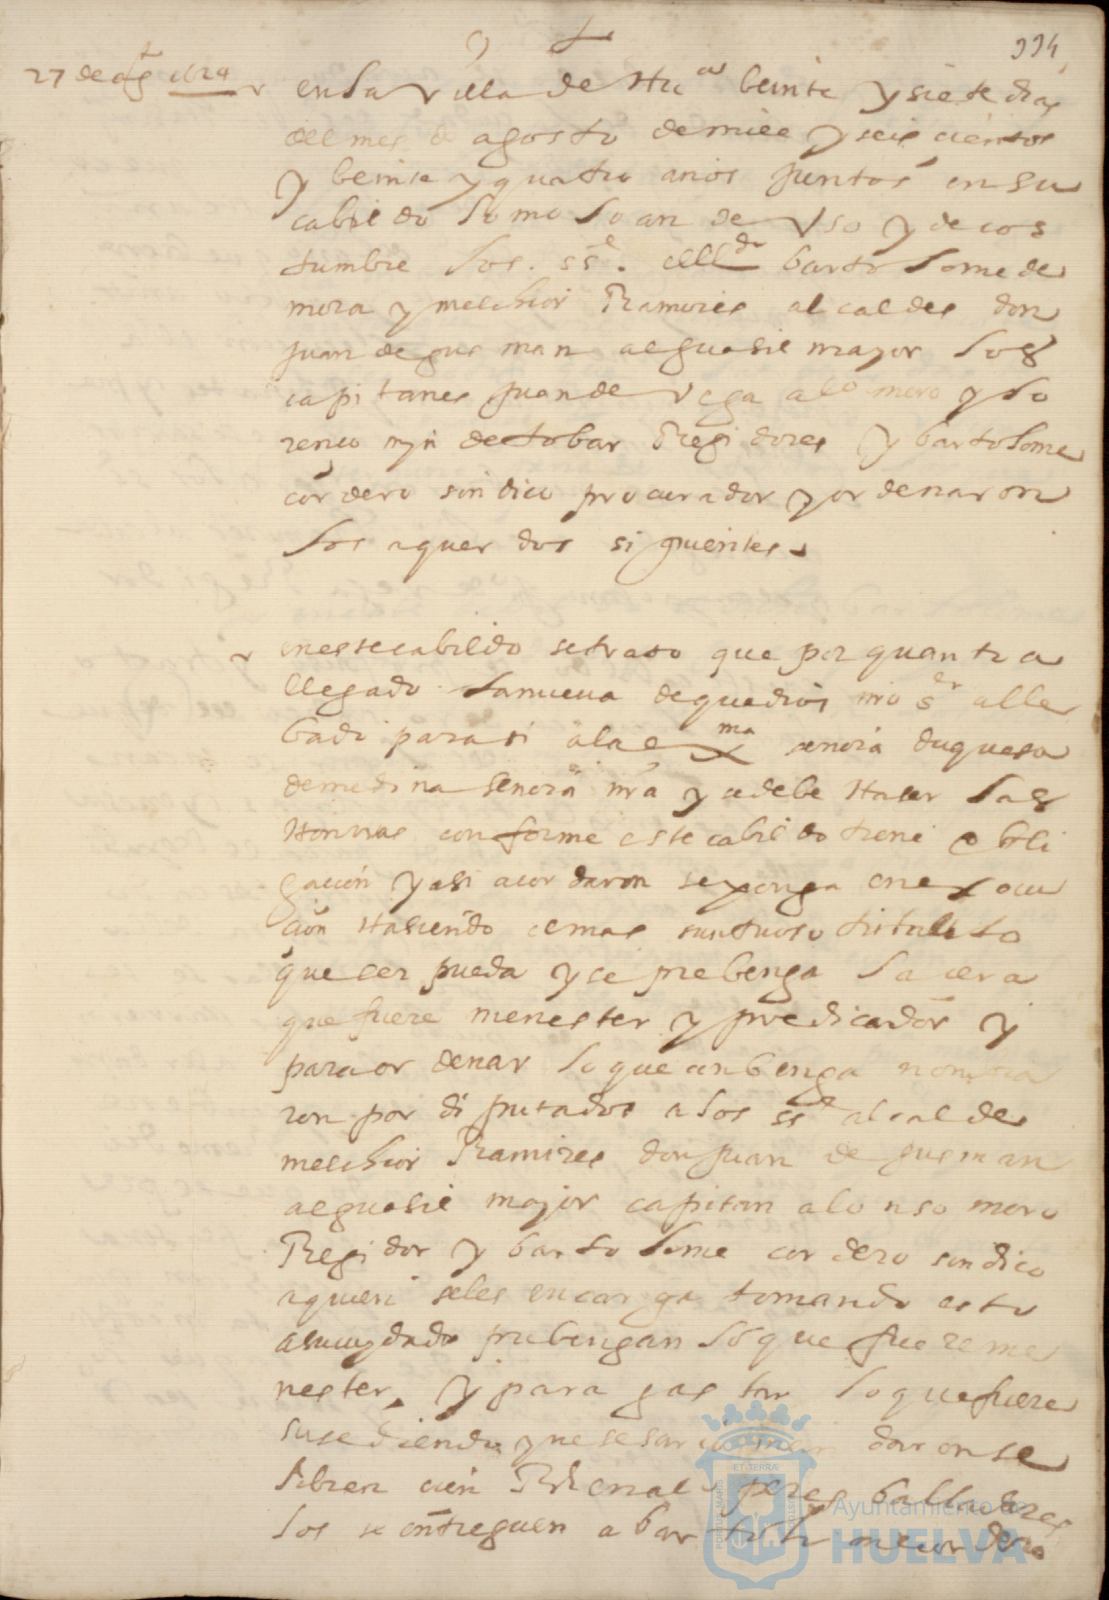 334
27 de agto 1624
en la villa de Hua beinte y siete dias
del mes de agosto de mill y seis cientos
y beinte y quatro años juntos en su
cabildo como lo an de uso y de cos
tumbre los ss.es alld barto lome de
mora y melchior Ramires alcaldes don
juan de gusman alguasil mayor los
capitanes juan de vega alo moro y lo
renço mjn de tobar Regidores y bartolome
cordero sindico procurador y ordenaron
los aquerdos siguientes
en este cabildo se trato que por quanto a
llegado la nueva de que dios nro sr a lle
bado para si a la exma senora duquesa
de medina senora nra y se debe haser las
honrras conforme este cabildo tiene obli
gacion y asi acordaron se ponga en execu
cion hasiendo el mas suntuoso titulito
que ser pueda y se prebenga la cera
que fuere menester y predicador y
para ordenar lo que conbenga nombra
ron por diputados a los sses alcalde
melchior Ramires don juan de gusman
alguasil major capitan alonso moro
Regidor y bartolome cordero sindico
a quien se les encarga tomando esto
a su cuydado prebengan lo que fuere me
nester y para gastar lo que fuere
susediendo y nesesario mandaron se
libren cien Reales
los se entreguen a bartolome cordero
Ayuntamiento de
HUELVA